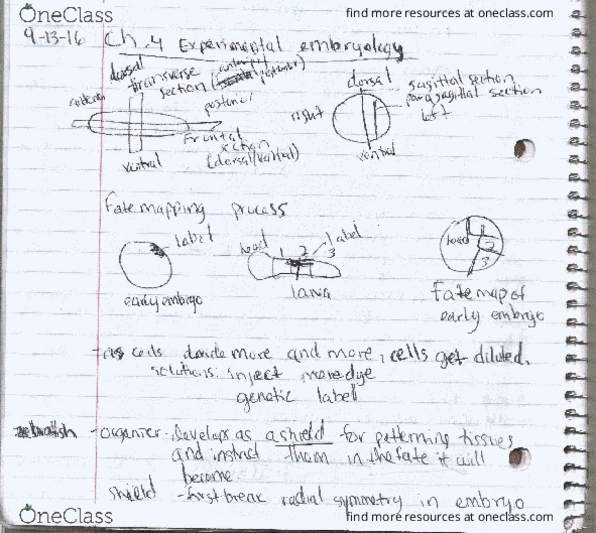 OneClass
find more resources at oneclass.com
9-13-16 Ch. 4 Experimental embryology
dorsal
transverse
section (anterior/posterior)
anterior
posterior
Frontal
section
(dorsal/ventral)
ventral
dorsal
sagittal section
parasagittal section
right
left
ventral
Fate mapping process
label
early embryo
head 1 2 3 label
larva
head 1 2 3
Fate map of
early embryo
as cells divide more and more, cells get diluted.
solutions: inject more dye
genetic label
zebrafish - organizer - develops as a shield for patterning tissues
and instruct them in the fate it will
become
shield - first break radial symmetry in embryo
OneClass
find more resources at oneclass.com